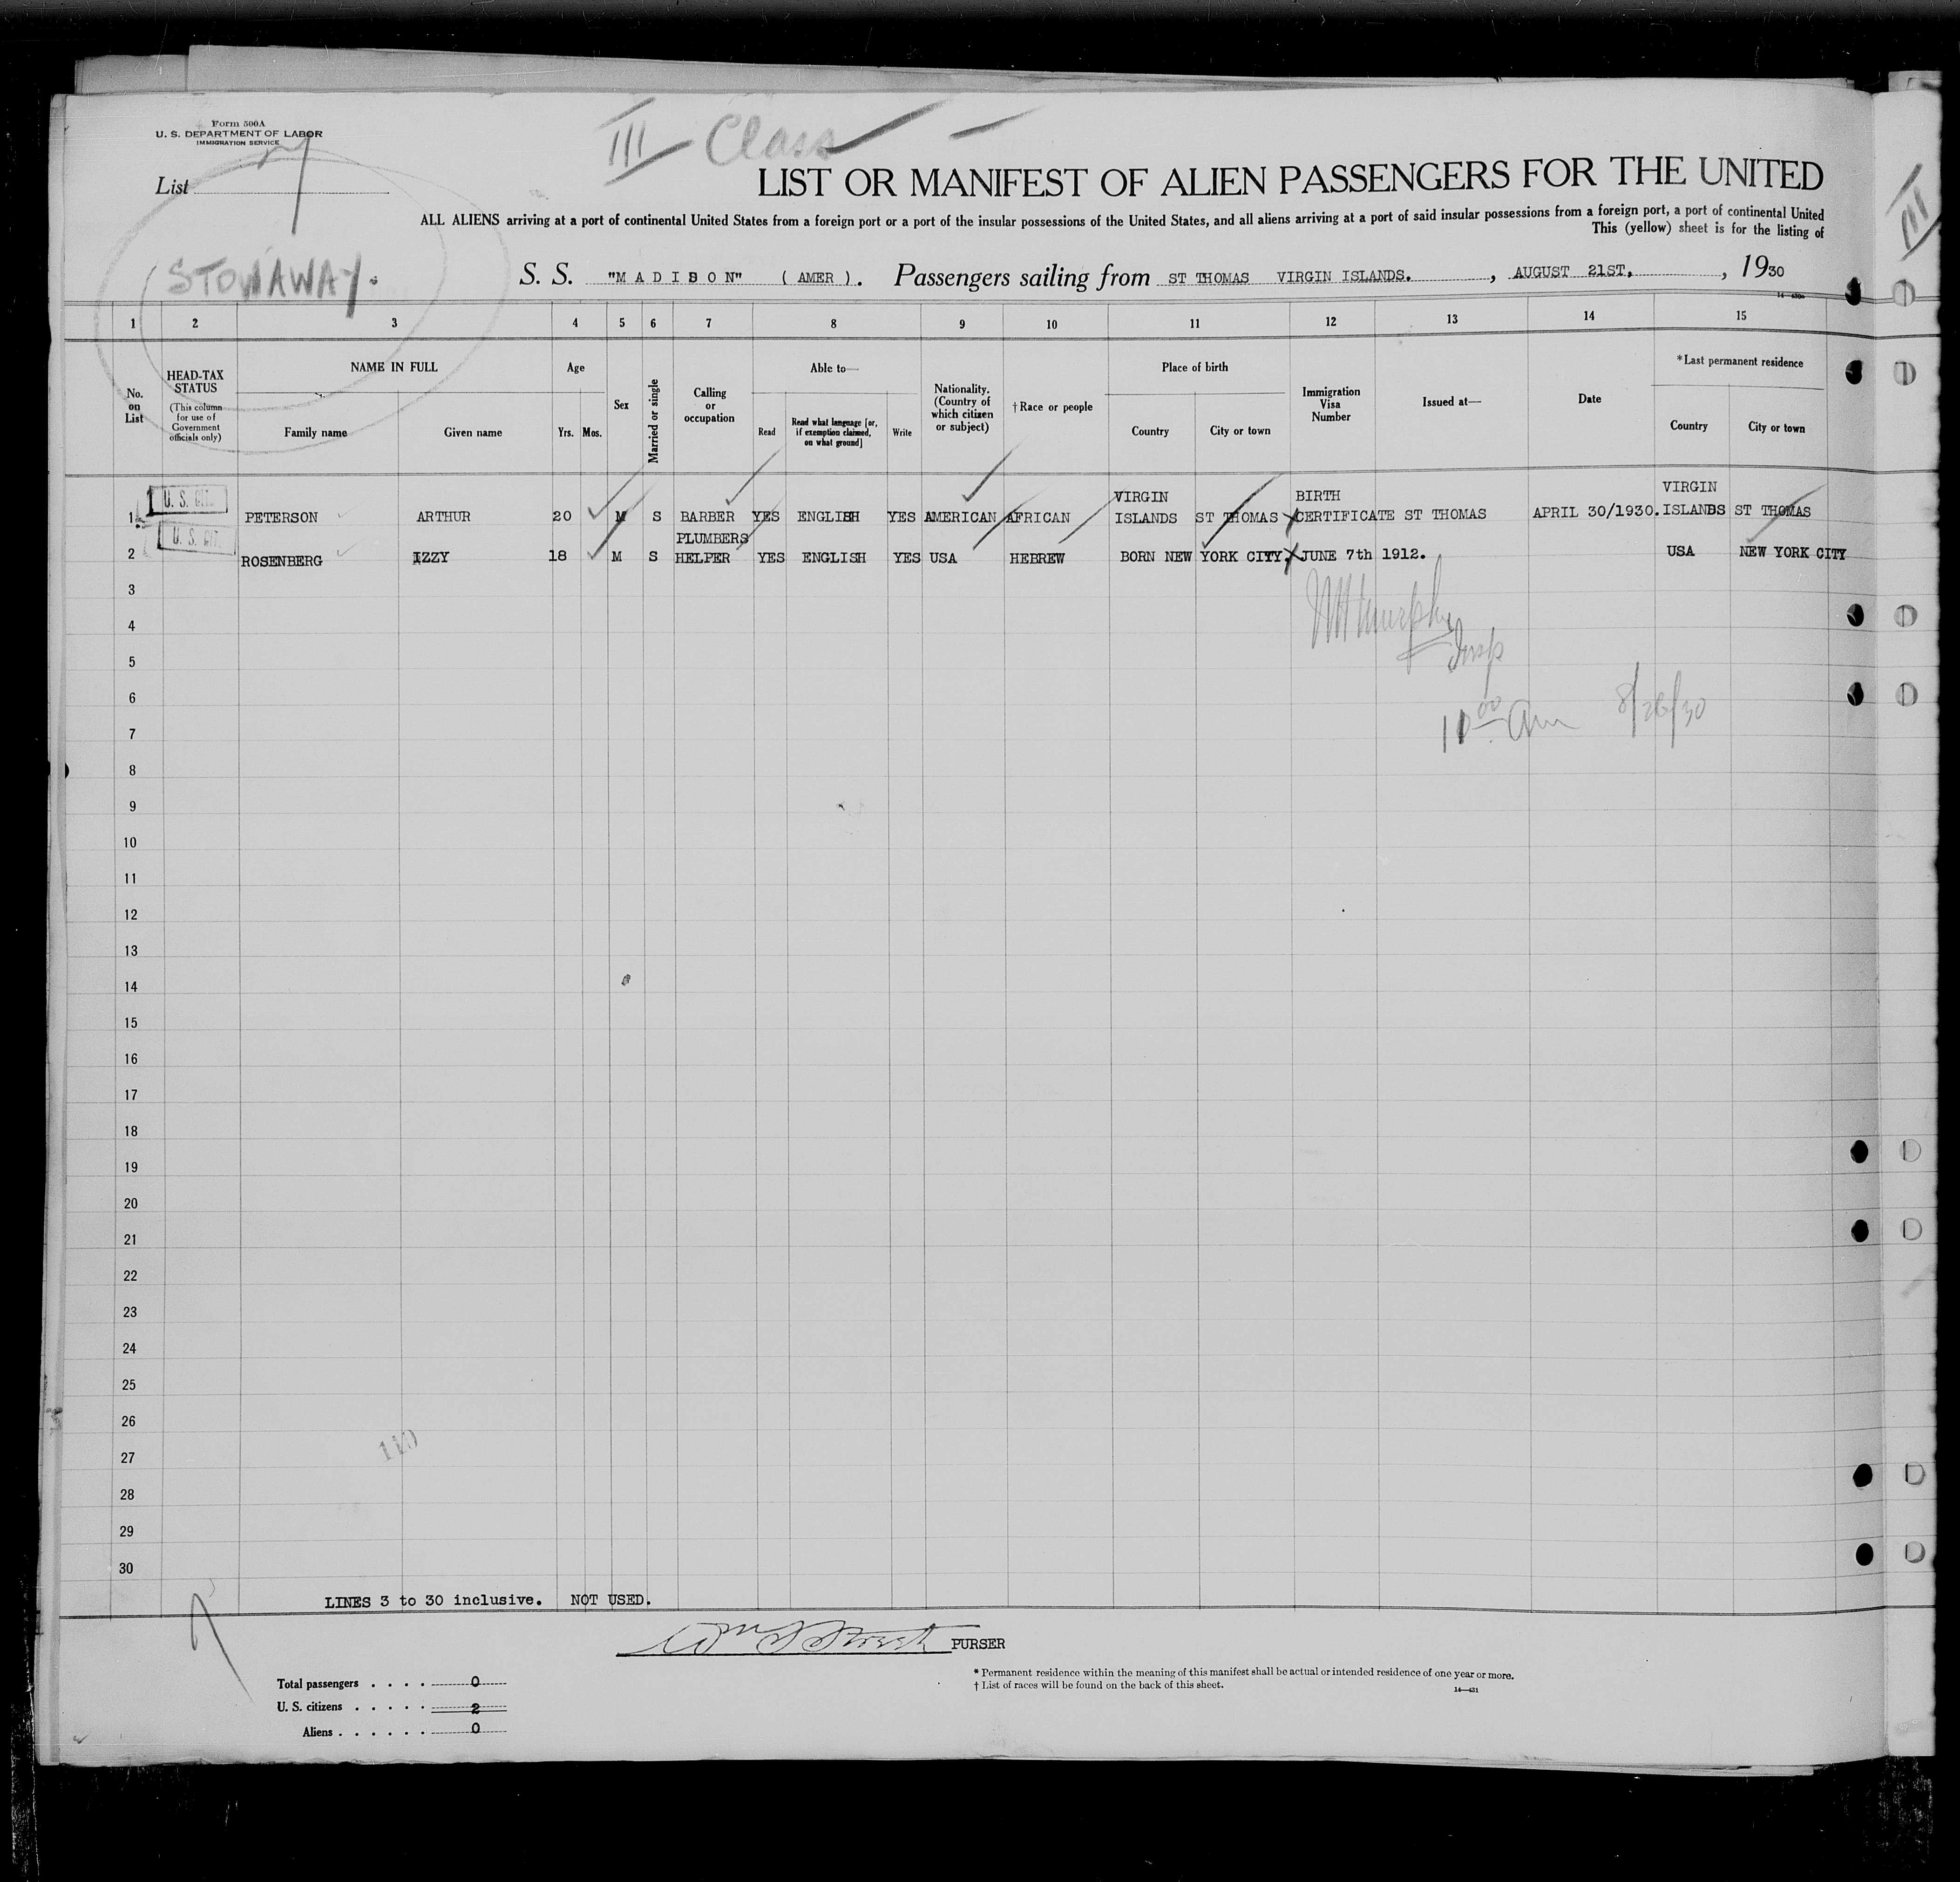 Form 500A
U. S. DEPARTMENT OF LABOR
IMMIGRATION SERVICE
III Class
List 7
LIST OR MANIFEST OF ALIEN PASSENGERS FOR THE UNITED
ALL ALIENS arriving at a port of continental United States from a foreign port or a port of the insular possessions of the United States, and all aliens arriving at a port of said insular possessions from a foreign port, a port of continental United
This (yellow) sheet is for the listing of
STOWAWAY.
S. S. "MADISON" (AMER). Passengers sailing from ST THOMAS VIRGIN ISLANDS. , AUGUST 21ST, , 1930
1 2 3 4 5 6 7 8 9 10 11 12 13 14 15
No. on List
HEAD-TAX STATUS
(This column for use of Government officials only)
NAME IN FULL
Family name Given name
Age
Yrs. Mos.
Sex
Married or single
Calling or occupation
Able to—
Read
Read what language [or, if exemption claimed, on what ground]
Write
Nationality. (Country of which citizen or subject)
†Race or people
Place of birth
Country City or town
Immigration Visa Number
Issued at—
Date
*Last permanent residence
Country City or town
U. S. CIT.
1 PETERSON ARTHUR 20 M S BARBER YES ENGLISH YES AMERICAN AFRICAN VIRGIN ISLANDS ST THOMAS BIRTH CERTIFICATE ST THOMAS APRIL 30/1930. VIRGIN ISLANDS ST THOMAS
U. S. CIT.
2 ROSENBERG IZZY 18 M S PLUMBERS HELPER YES ENGLISH YES USA HEBREW BORN NEW YORK CITY. JUNE 7th 1912. USA NEW YORK CITY
3
4
5
Insp
6
7
11 00 am 8/26/30
8
9
10
11
12
13
14
15
16
17
18
19
20
21
22
23
24
25
26
110
27
28
29
30
LINES 3 to 30 inclusive. NOT USED.
PURSER
* Permanent residence within the meaning of this manifest shall be actual or intended residence of one year or more.
† List of races will be found on the back of this sheet.
Total passengers . . . . 0
U. S. citizens . . . . . 2
Aliens . . . . . . 0